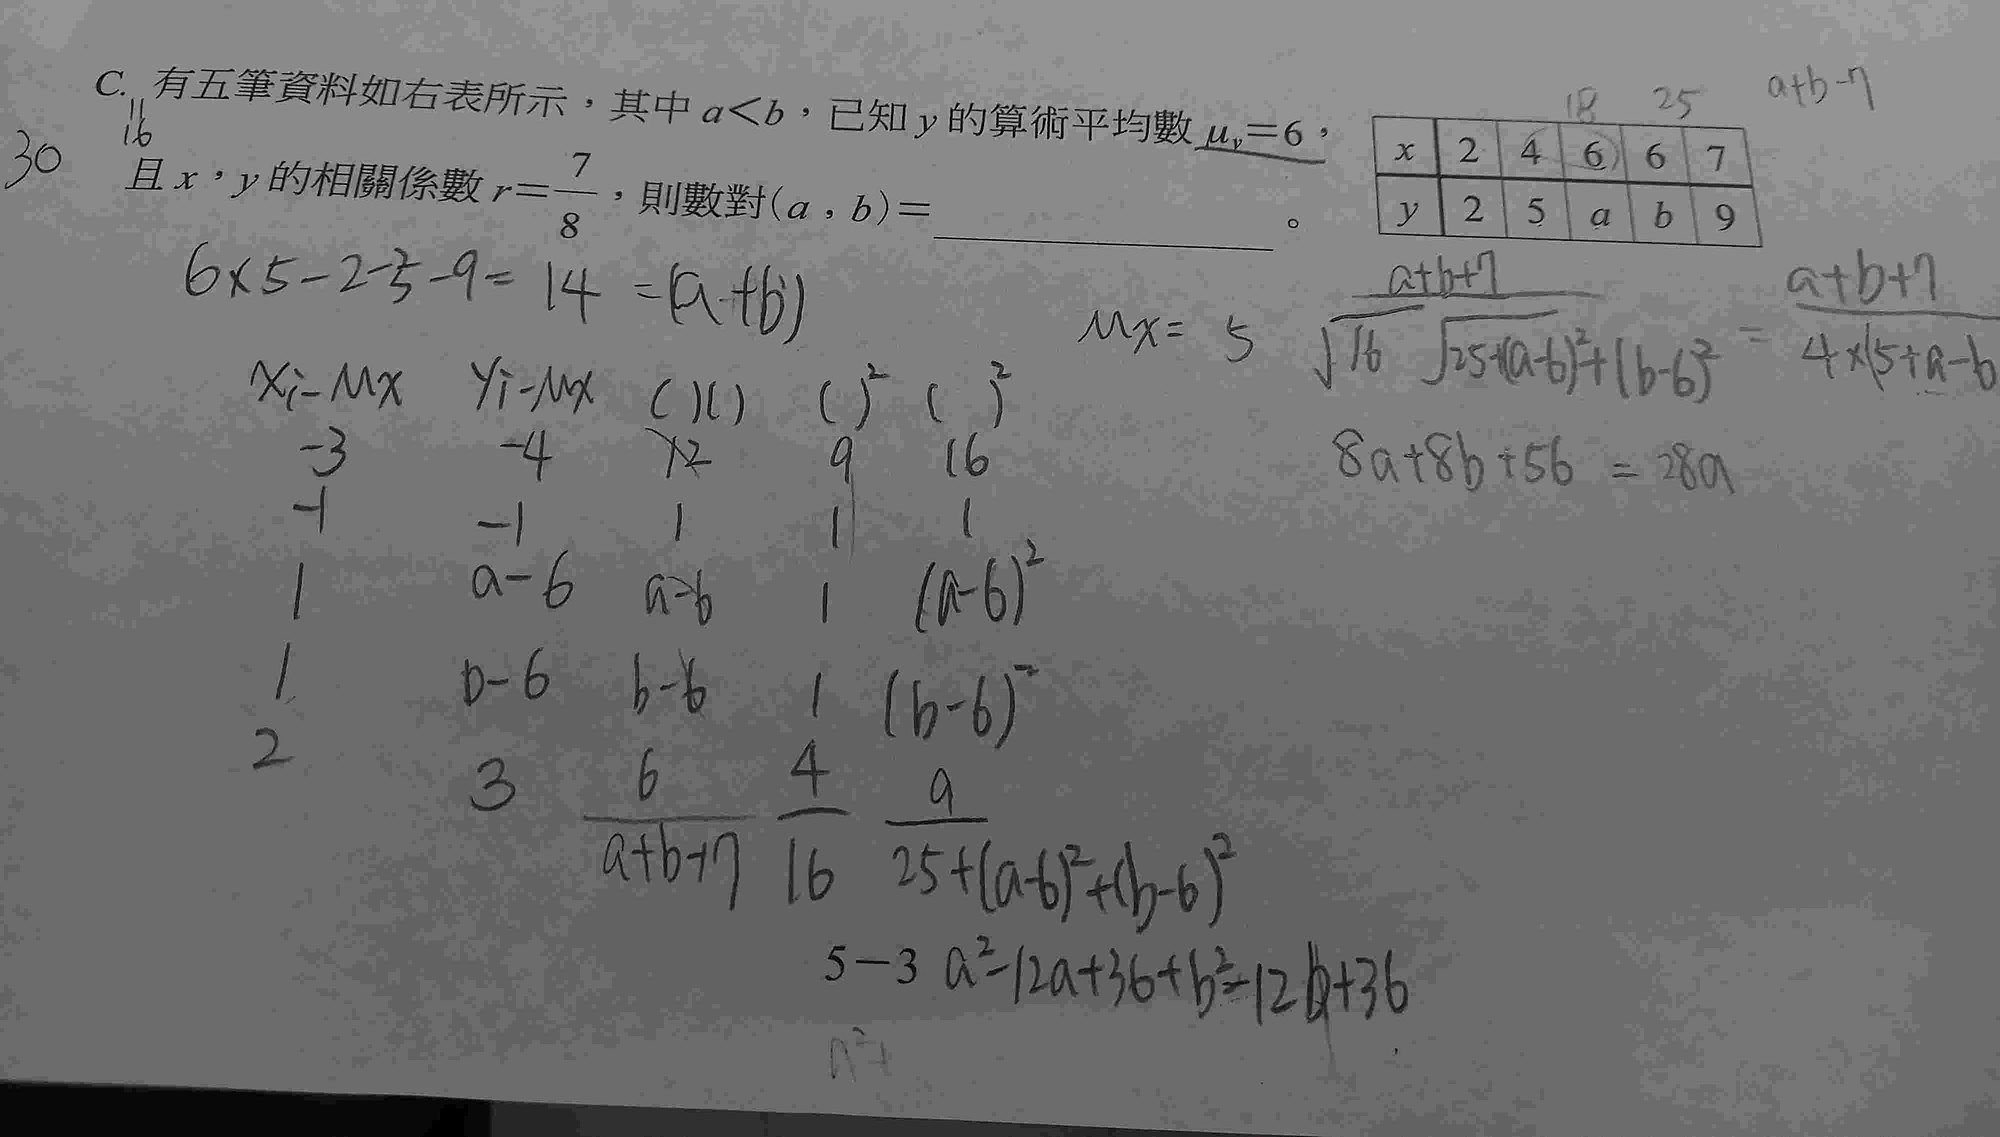 18 25 a+b-7
C. 有五筆資料如右表所示，其中 a＜b，已知 y 的算術平均數 μy＝6，
16
30
且 x，y 的相關係數 r＝7/8，則數對(a，b)＝＿＿＿＿。
x 2 4 6 6 7
y 2 5 a b 9
6×5-2-5-9= 14 =(a+b)
Mx= 5
a+b+7 / √16 √25+(a-6)²+(b-6)² = a+b+7 / 4×(5+a-b
8a+8b+56 = 28a
xi-Mx yi-Mx ( )( ) ( )² ( )²
-3 -4 12 9 16
-1 -1 1 1 1
1 a-6 a-6 1 (a-6)²
1 b-6 b-6 1 (b-6)²
2 3 6 4 9
a+b+7 16 25+(a-6)²+(b-6)²
5－3 a²-12a+36+b²-12b+36
a²+